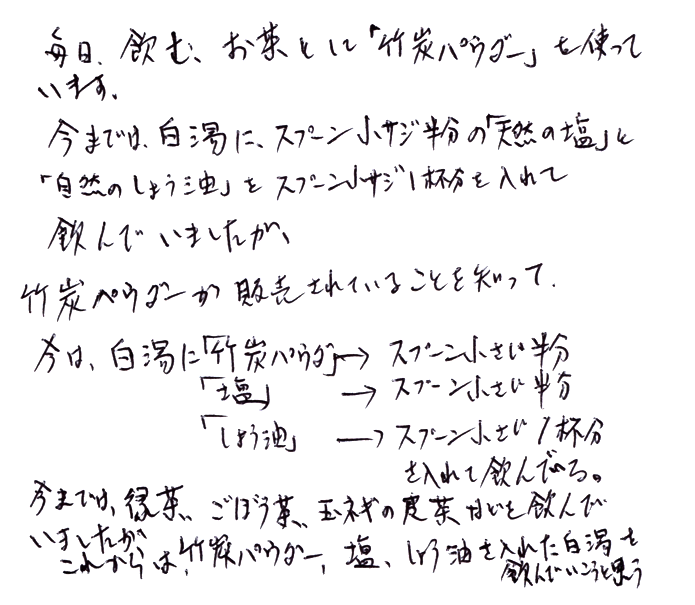 毎日、飲む、お茶として「竹炭パウダー」を使って
います。
今までは、白湯に、スプーン小サジ半分の「天然の塩」と
「自然のしょう油」をスプーン小サジ1杯分を入れて
飲んでいましたが、
竹炭パウダーが販売されていることを知って、
今は、白湯に「竹炭パウダー」→ スプーン小さじ半分
「塩」 → スプーン小さじ半分
「しょう油」 → スプーン小さじ1杯分
を入れて飲んでいる。
今までは、緑茶、ごぼう茶、玉ネギの皮茶などを飲んで
いましたが
これからは、竹炭パウダー、塩、しょう油を入れた白湯を
飲んでいこうと思う